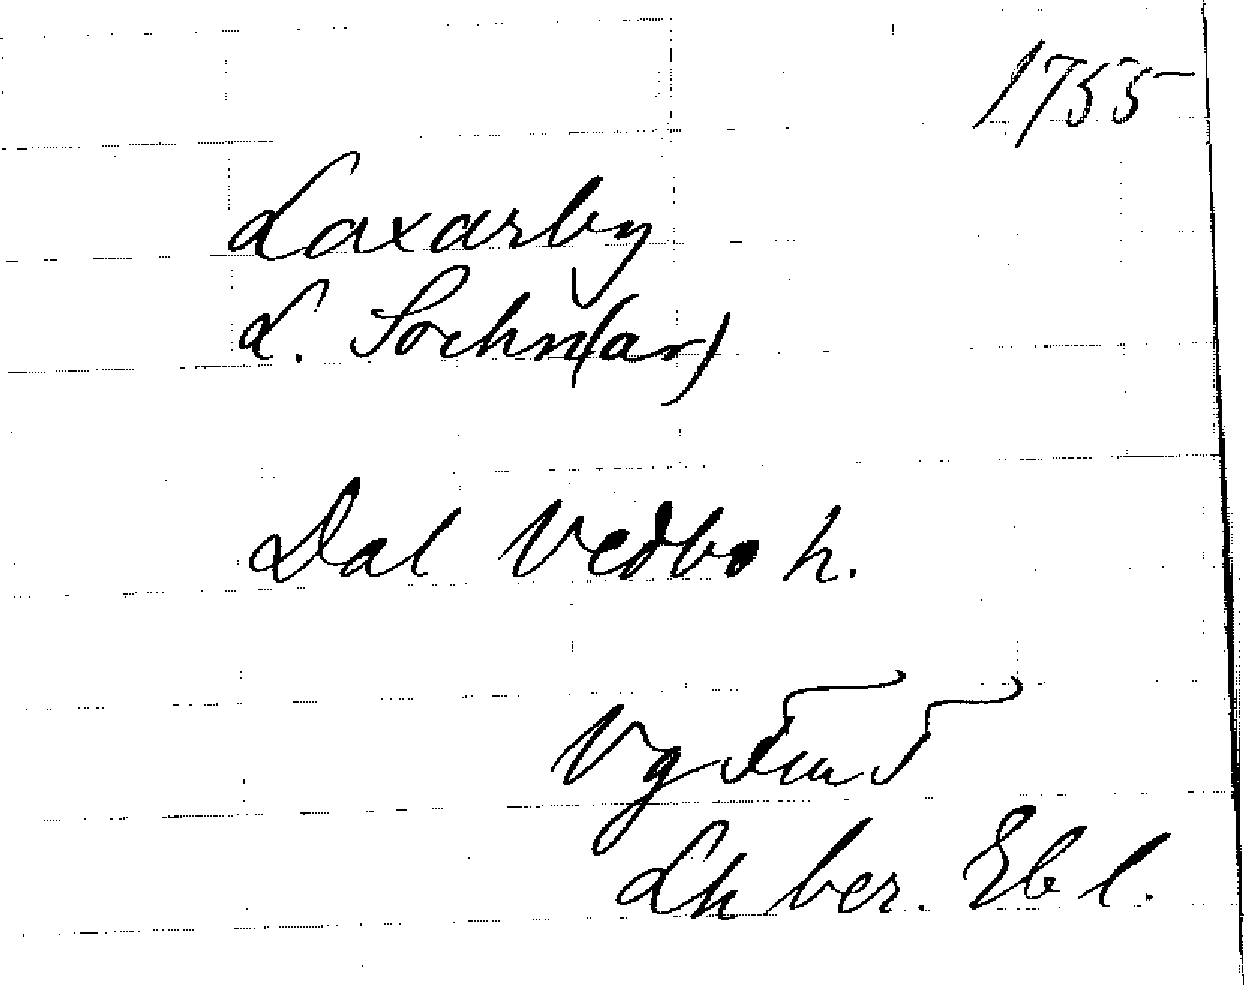 1755
Laxarby
L. Sochn(ar)
Dal Vedbo h.
Vg
Lh ber. Eb l.